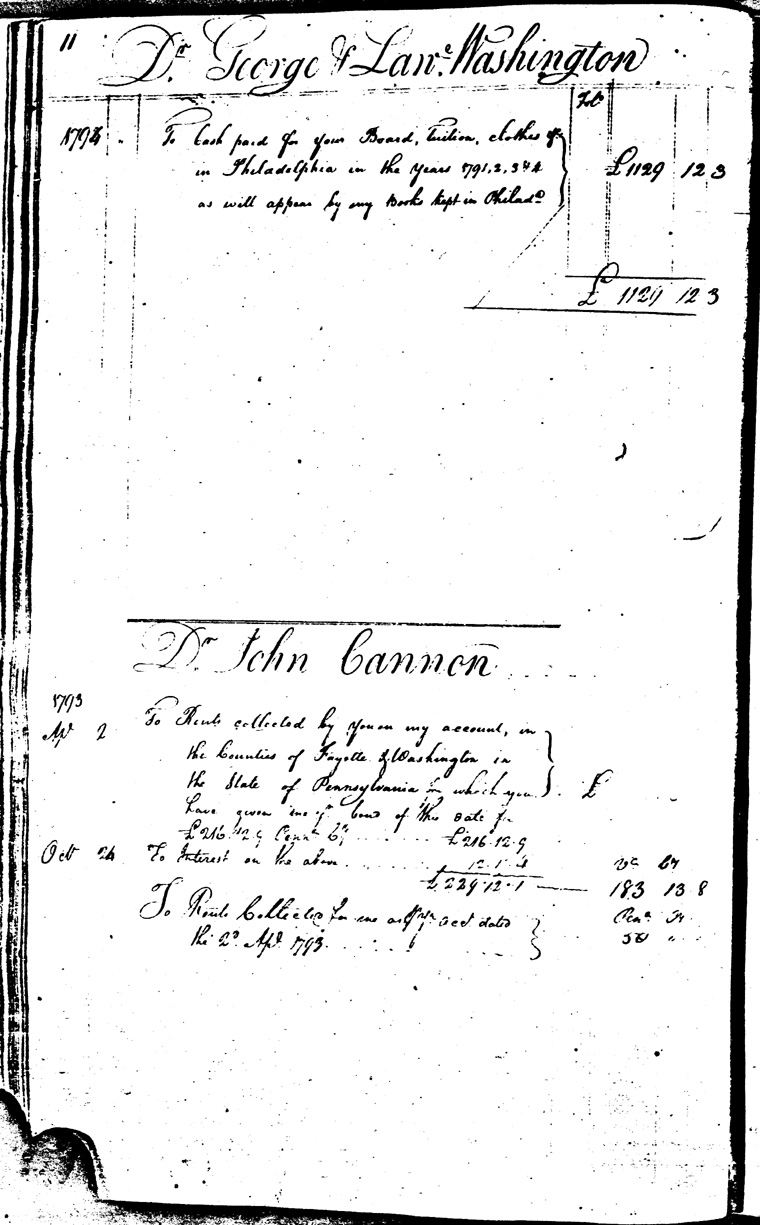 11
Dr. George & Lawe. Washington
Fol.
1794 " To Cash paid for your Board, Tuition, clothes &c
in Philadelphia in the years 1791, 2, 3 & 4 £ 1129 12 3
as will appear by my Books kept in Philada.
£ 1129 12 3
Dr. John Cannon
1793
Apl. 2 To Rents collected by you on my account, in
the Counties of Fayette & Washington in
the State of Pennsylvania for which you £
have given me yr. bond of this date for
£216.12.9 Penna. Cy £216.12.9
Oct 24 To Interest on the above 12.1.4 Va. Cy
£ 229.12.1 183 13 8
To Rents Collected for me as pr. acct dated Penn.
the 2d Apl. 1793. 50 "